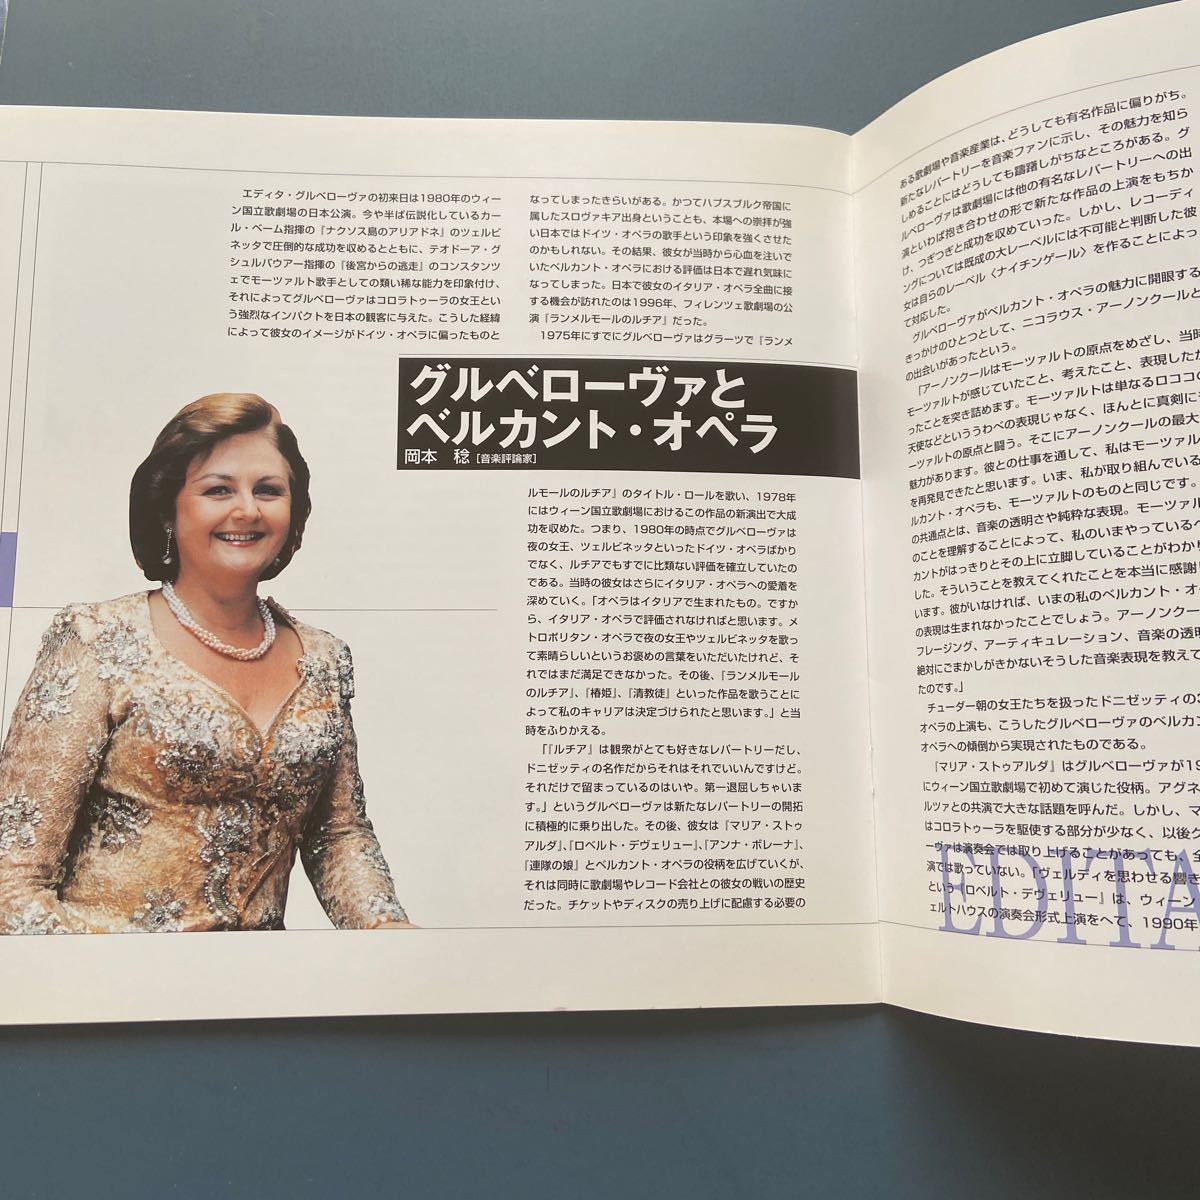 エディタ・グルベローヴァの初来日は1980年のウィー
ン国立歌劇場の日本公演。今や半ば伝説化しているカー
ル・ベーム指揮の『ナクソス島のアリアドネ』のツェルビ
ネッタで圧倒的な成功を収めるとともに、テオドーア・グ
シュルバウアー指揮の『後宮からの逃走』のコンスタンツ
ェでモーツァルト歌手としての類い稀な能力を印象付け、
それによってグルベローヴァはコロラトゥーラの女王とい
う強烈なインパクトを日本の観客に与えた。こうした経緯
によって彼女のイメージがドイツ・オペラに偏ったものと
なってしまったきらいがある。かつてハプスブルク帝国に
属したスロヴァキア出身ということも、本場への崇拝が強
い日本ではドイツ・オペラの歌手という印象を強くさせた
のかもしれない。その結果、彼女が当時から心血を注いで
いたベルカント・オペラにおける評価は日本で遅れ気味に
なってしまった。日本で彼女のイタリア・オペラ全曲に接
する機会が訪れたのは1996年、フィレンツェ歌劇場の公
演『ランメルモールのルチア』だった。
1975年にすでにグルベローヴァはグラーツで『ランメ
グルベローヴァと
ベルカント・オペラ
岡本 稔[音楽評論家]
ルモールのルチア』のタイトル・ロールを歌い、1978年
にはウィーン国立歌劇場におけるこの作品の新演出で大成
功を収めた。つまり、1980年の時点でグルベローヴァは
夜の女王、ツェルビネッタといったドイツ・オペラばかり
でなく、ルチアでもすでに比類ない評価を確立していたの
である。当時の彼女はさらにイタリア・オペラへの愛着を
深めていく。「オペラはイタリアで生まれたもの。ですか
ら、イタリア・オペラで評価されなければと思います。メ
トロポリタン・オペラで夜の女王やツェルビネッタを歌っ
て素晴らしいというお褒めの言葉をいただいたけれど、そ
れではまだ満足できなかった。その後、『ランメルモール
のルチア』、『椿姫』、『清教徒』といった作品を歌うことに
よって私のキャリアは決定づけられたと思います。」と当
時をふりかえる。
「『ルチア』は観衆がとても好きなレパートリーだし、
ドニゼッティの名作だからそれはそれでいいんですけど。
それだけで留まっているのはいや。第一退屈しちゃいま
す。」というグルベローヴァは新たなレパートリーの開拓
に積極的に乗り出した。その後、彼女は『マリア・ストゥ
アルダ』、『ロベルト・デヴェリュー』、『アンナ・ボレーナ』、
『連隊の娘』とベルカント・オペラの役柄を広げていくが、
それは同時に歌劇場やレコード会社との彼女の戦いの歴史
だった。チケットやディスクの売り上げに配慮する必要の
ある歌劇場や音楽産業は、どうしても有名作品に偏りがち。
新たなレパートリーを音楽ファンに示し、その魅力を知ら
しめることにはどうしても躊躇しがちなところがある。グ
ルベローヴァは歌劇場には他の有名なレパートリーへの出
演といわば抱き合わせの形で新たな作品の上演をもちか
け、つぎつぎと成功を収めていった。しかし、レコーディ
ングについては既成の大レーベルには不可能と判断した彼
女は自らのレーベル〈ナイチンゲール〉を作ることによっ
て対応した。
グルベローヴァがベルカント・オペラの魅力に開眼する
きっかけのひとつとして、ニコラウス・アーノンクールと
の出会いがあったという。
「アーノンクールはモーツァルトの原点をめざし、当時
モーツァルトが感じていたこと、考えたこと、表現したか
ったことを突き詰めます。モーツァルトは単なるロココの
天使などといううわべの表現じゃなく、ほんとに真剣にモ
ーツァルトの原点と闘う。そこにアーノンクールの最大
魅力があります。彼との仕事を通して、私はモーツァル
を再発見できたと思います。いま、私が取り組んでいる
ルカント・オペラも、モーツァルトのものと同じです。
の共通点とは、音楽の透明さや純粋な表現。モーツァル
のことを理解することによって、私のいまやっている
カントがはっきりとその上に立脚していることがわかり
した。そういうことを教えてくれたことを本当に感謝し
います。彼がいなければ、いまの私のベルカント・オ
の表現は生まれなかったことでしょう。アーノンクー
フレージング、アーティキュレーション、音楽の透明
絶対にごまかしがきかないそうした音楽表現を教えて
たのです。」
チューダー朝の女王たちを扱ったドニゼッティの3
オペラの上演も、こうしたグルベローヴァのベルカン
オペラへの傾倒から実現されたものである。
『マリア・ストゥアルダ』はグルベローヴァが19
にウィーン国立歌劇場で初めて演じた役柄。アグネ
ルツァとの共演で大きな話題を呼んだ。しかし、マ
はコロラトゥーラを駆使する部分が少なく、以後グ
ーヴァは演奏会では取り上げることがあっても、全
演では歌っていない。「ヴェルディを思わせる響き
という『ロベルト・デヴェリュー』は、ウィーン・
ェルトハウスの演奏会形式上演をへて、1990年
EDITA